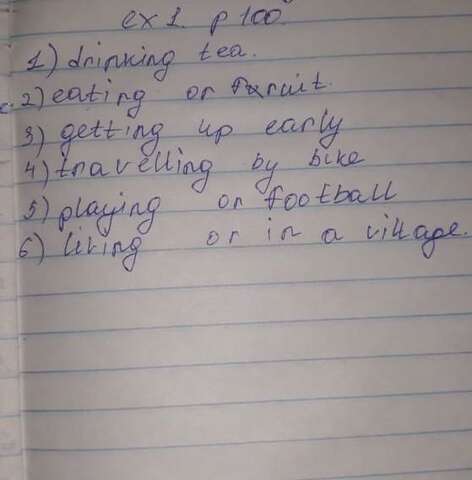 ex 1. p 100.
1) drinking tea.
2) eating or fruit.
3) getting up early
4) travelling by bike
5) playing or football
6) living or in a village.